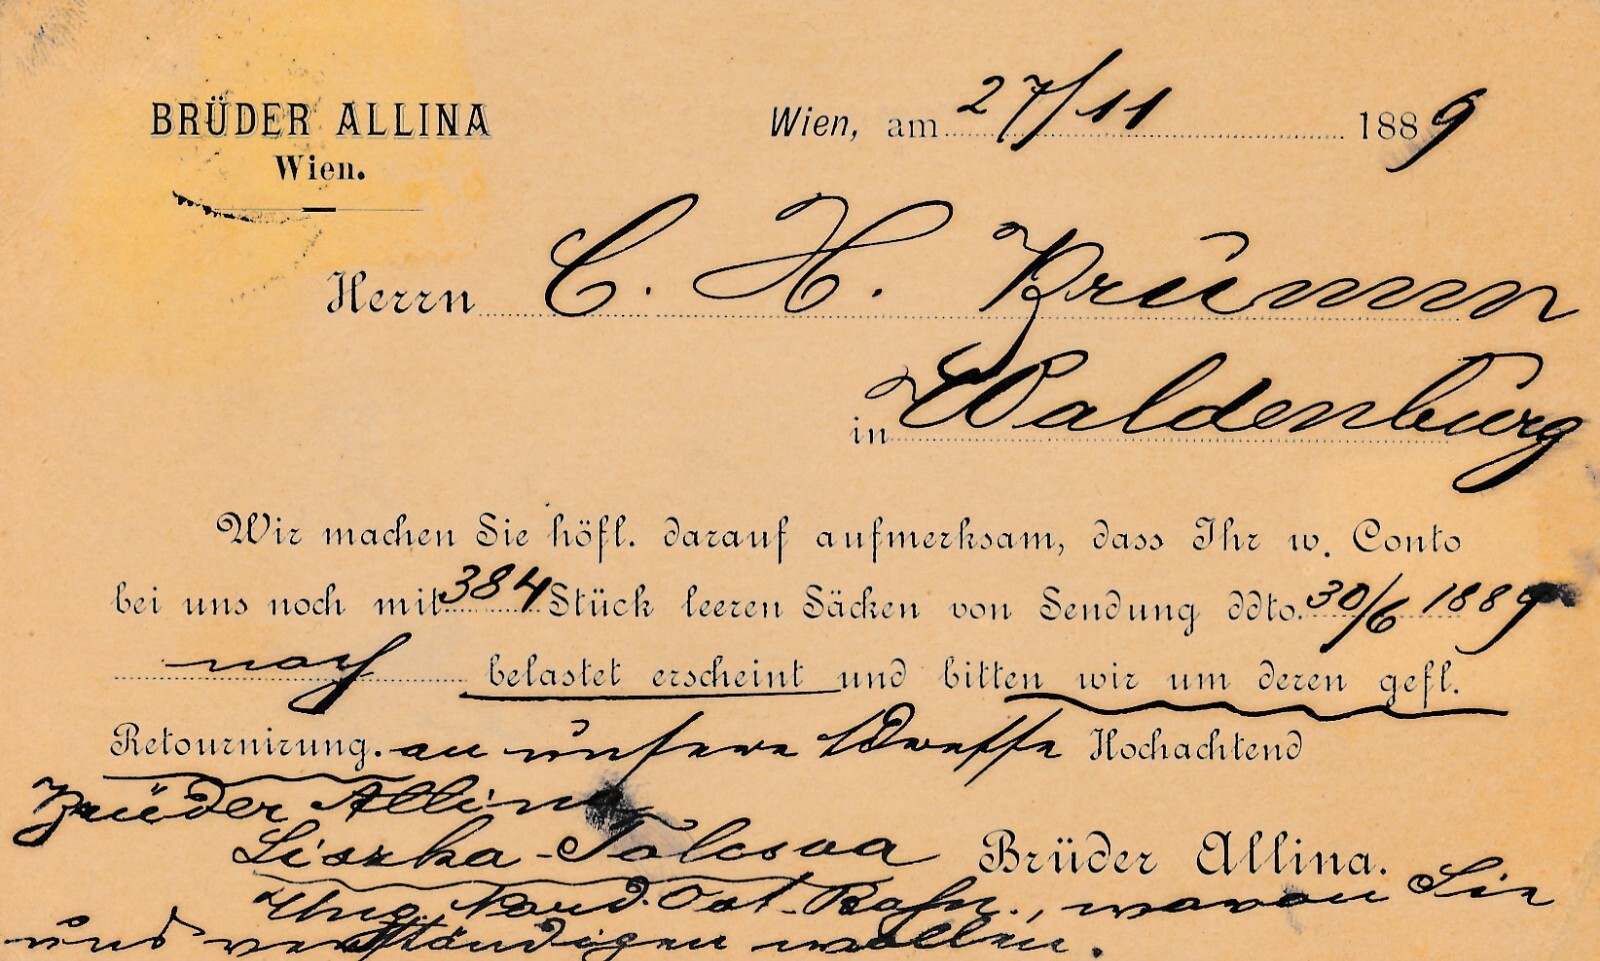 BRÜDER ALLINA
Wien.
Wien, am 27/11 1889
Herrn C. H. Krumm
in Waldenburg
Wir machen Sie höfl. darauf aufmerksam, dass Ihr w. Conto
bei uns noch mit 384 Stück leeren Säcken von Sendung ddto. 30/6 1889
noch belastet erscheint und bitten wir um deren gefl.
Retournirung. an unsere Adresse Hochachtend
Brüder Allina
Liszka-Tolcsva Brüder Allina.
Ung. Nord. Ost-Bahn., wovon Sie
uns verständigen wollen.